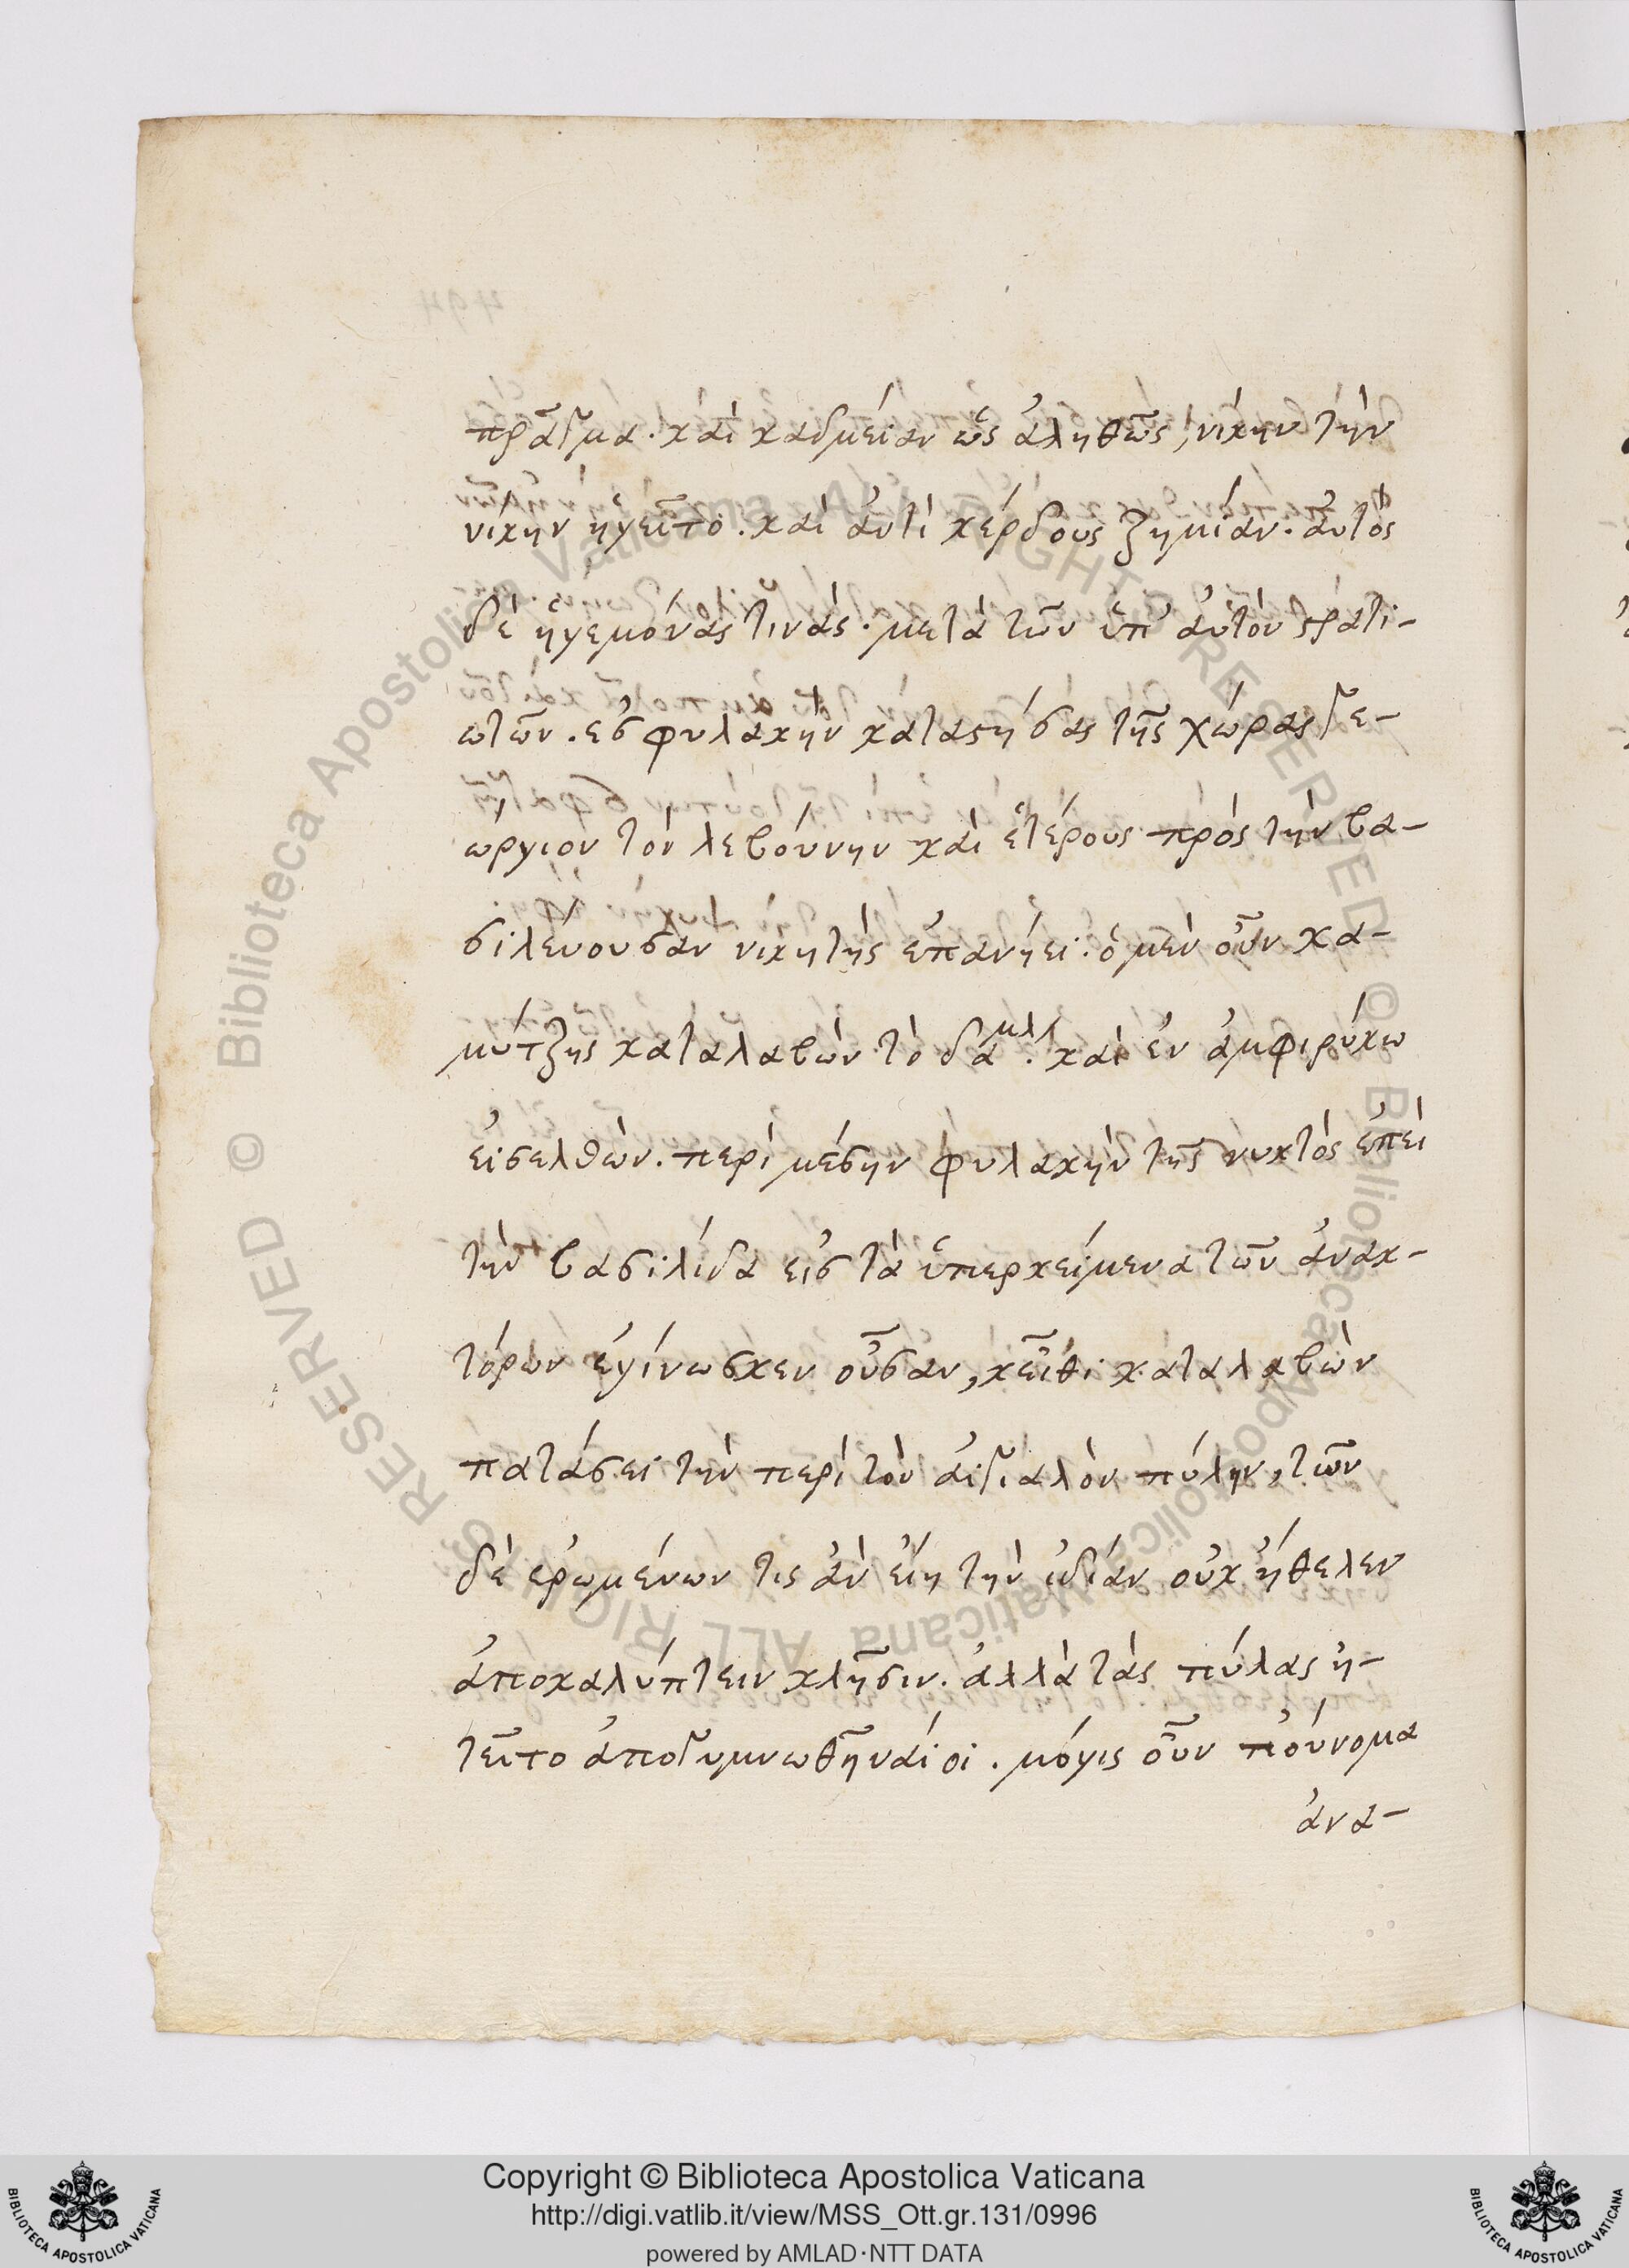 πρᾶγμα· καὶ καδμείαν ὡς ἀληθῶς, νίκην τὴν
νίκην ἡγεῖτο. καὶ ἀντὶ κέρδους ζημίαν. ἀυτὸς
δὲ ἡγεμόνας τινάς· μετὰ τῶν ὑπ' ἀυτὸν στρατι-
ωτῶν. ἐς φυλακὴν καταστήσας τῆς χώρας γε-
ώργιον τὸν λεβούνην καὶ ἑτέρους πρὸς τὴν βα-
σιλεύουσαν νικητὴς ἐπανήει· ὁ μὲν οὖν κα-
μύτζης καταλαβὼν τὸ δαμλ. καὶ ἐν ἀμφιρύκω
εἰσελθὼν. περὶ μέσην φυλακὴν τῆς νυκτὸς ἐπεὶ
τὴν βασιλίδα εἰς τὰ ὑπερκείμενα τῶν ἀνακ-
τόρων ἐγίνωσκεν οὖσαν, κεῖθι καταλαβὼν
πατάσει τὴν περὶ τὸν αἰγιαλὸν πύλην, τῶν
δὲ ἐρωμένων τις ἂν εἴη τὴν ἰδίαν οὐκ ἤθελεν
ἀποκαλύπτειν κλῆσιν. ἀλλὰ τὰς πύλας ἠ-
τεῖτο ἀπογυμνωθῆναί οἱ. μόγις οὖν τ' οὔνομα
ἀνα-
Copyright © Biblioteca Apostolica Vaticana
http://digi.vatlib.it/view/MSS_Ott.gr.131/0996
powered by AMLAD·NTT DATA
BIBLIOTECA APOSTOLICA VATICANA
BIBLIOTECA APOSTOLICA VATICANA
© Biblioteca Apostolica Vaticana ALL RIGHTS RESERVED
© Biblioteca Apostolica Vaticana ALL RIGHTS RESERVED